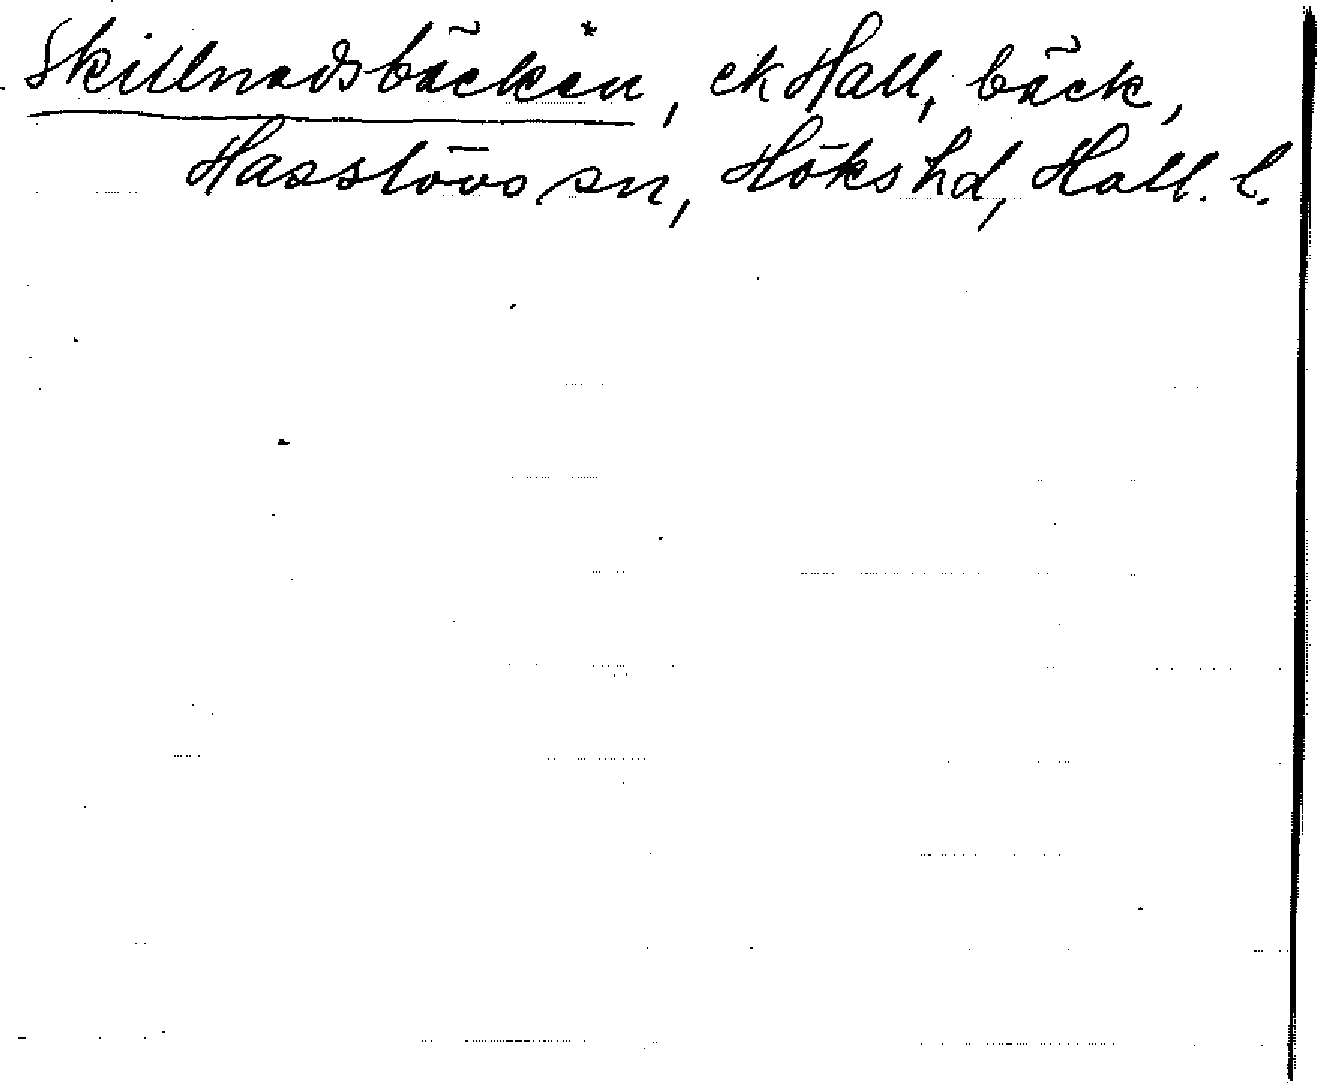 Skillnadsbäcken*, ek Hall, bäck,
Hasslövs sn, Höks hd, Hall. l.